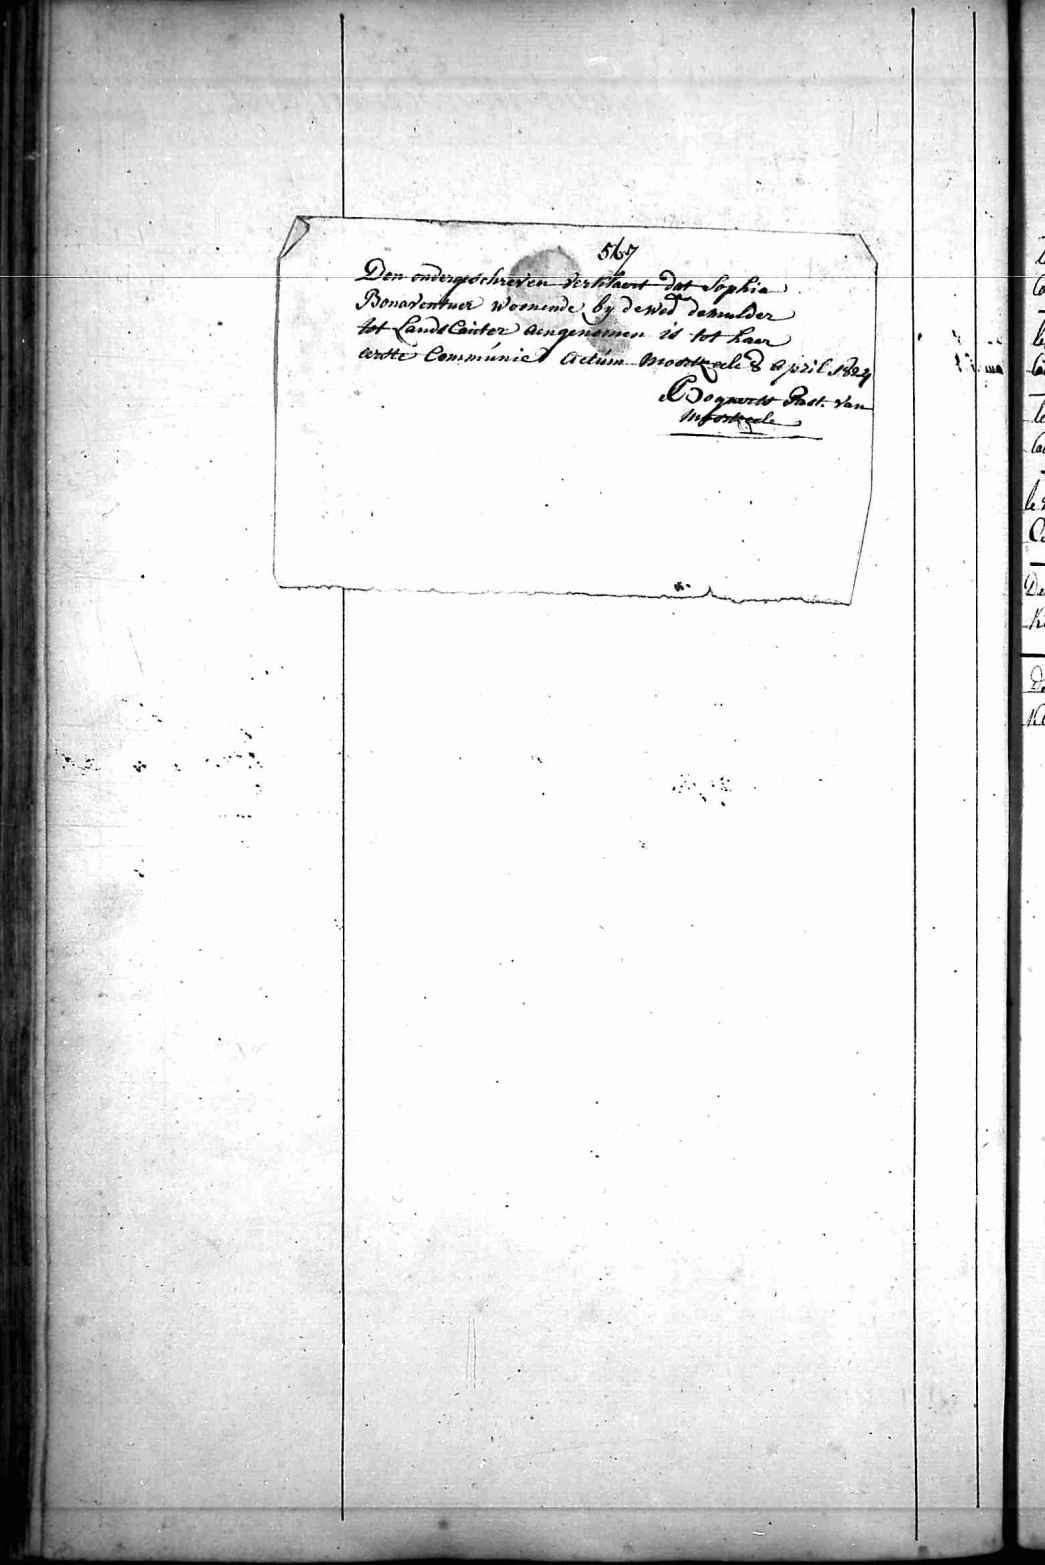 567
Den ondergeschreven verklaert dat Sophia
Bonaventuer woonende by de wed demulder
tot LandsCauter aengenomen is tot haer
eerste Communie actum Moortzeele 8 april 1824
Past. van
Moortzeele